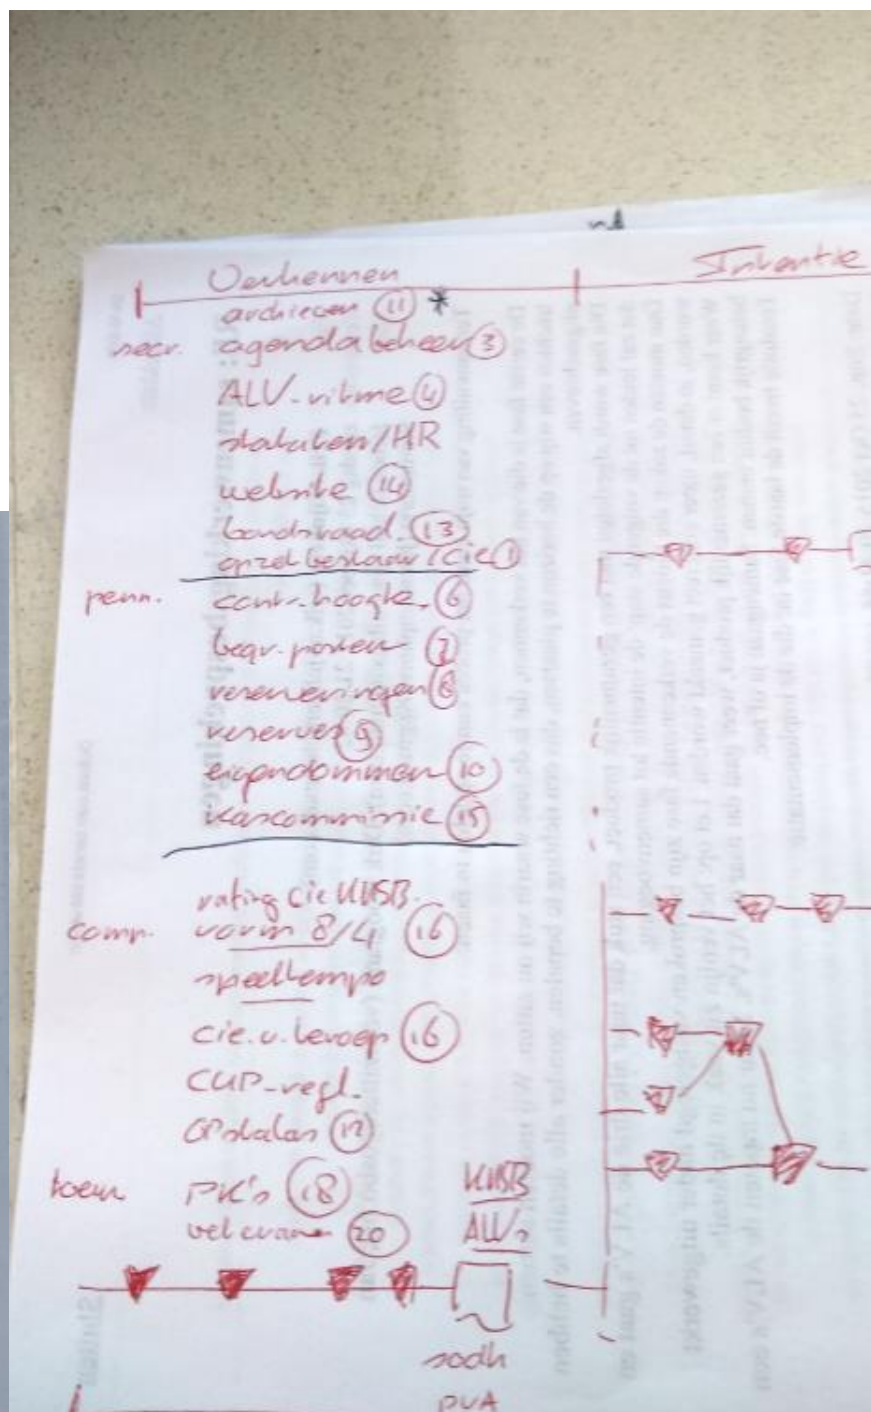 Verkennen
Intentie
archieven 11 *
secr. agendabeheer 3
ALV-ritme 4
statuten/HR
website 14
bondsraad 13
opzet bestuur/cie 1
penn. contr. hoogte 6
begr. posten 7
verrekeningen 8
reserves 9
eigendommen 10
kascommissie 15
rating cie KNSB
comp. vorm 8/4 16
speeltempo
cie. v. beroep 16
CUP-regl.
toern. PK's 18 KNSB
veteranen 20 ALV
PVA